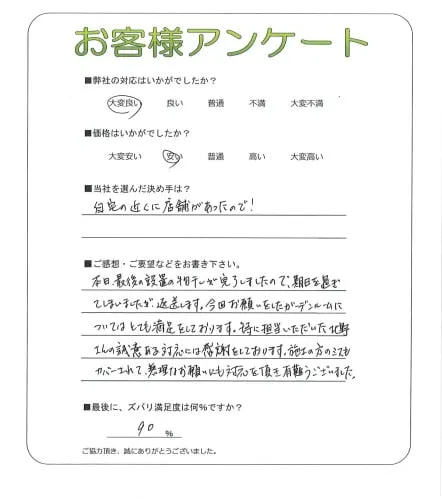 お客様アンケート
■弊社の対応はいかがでしたか?
大変良い 良い 普通 不満 大変不満
■価格はいかがでしたか?
大変安い 安い 普通 高い 大変高い
■当社を選んだ決め手は?
自宅の近くに店舗があったので!
■ご感想・ご要望などをお書き下さい。
本日、最後の設置の物干しが完了しましたので、期日を過ぎ
てしまいましたが、返送します。今回お願いをしたガーデンルームに
ついてはとても満足をしております。特に担当いただいた北野
さんの誠意ある対応には感謝をしております。施工の方のミスも
カバーされて、無理なお願いにも対応を頂き有難うございました。
■最後に、ズバリ満足度は何%ですか?
90 %
ご協力頂き、誠にありがとうございました。